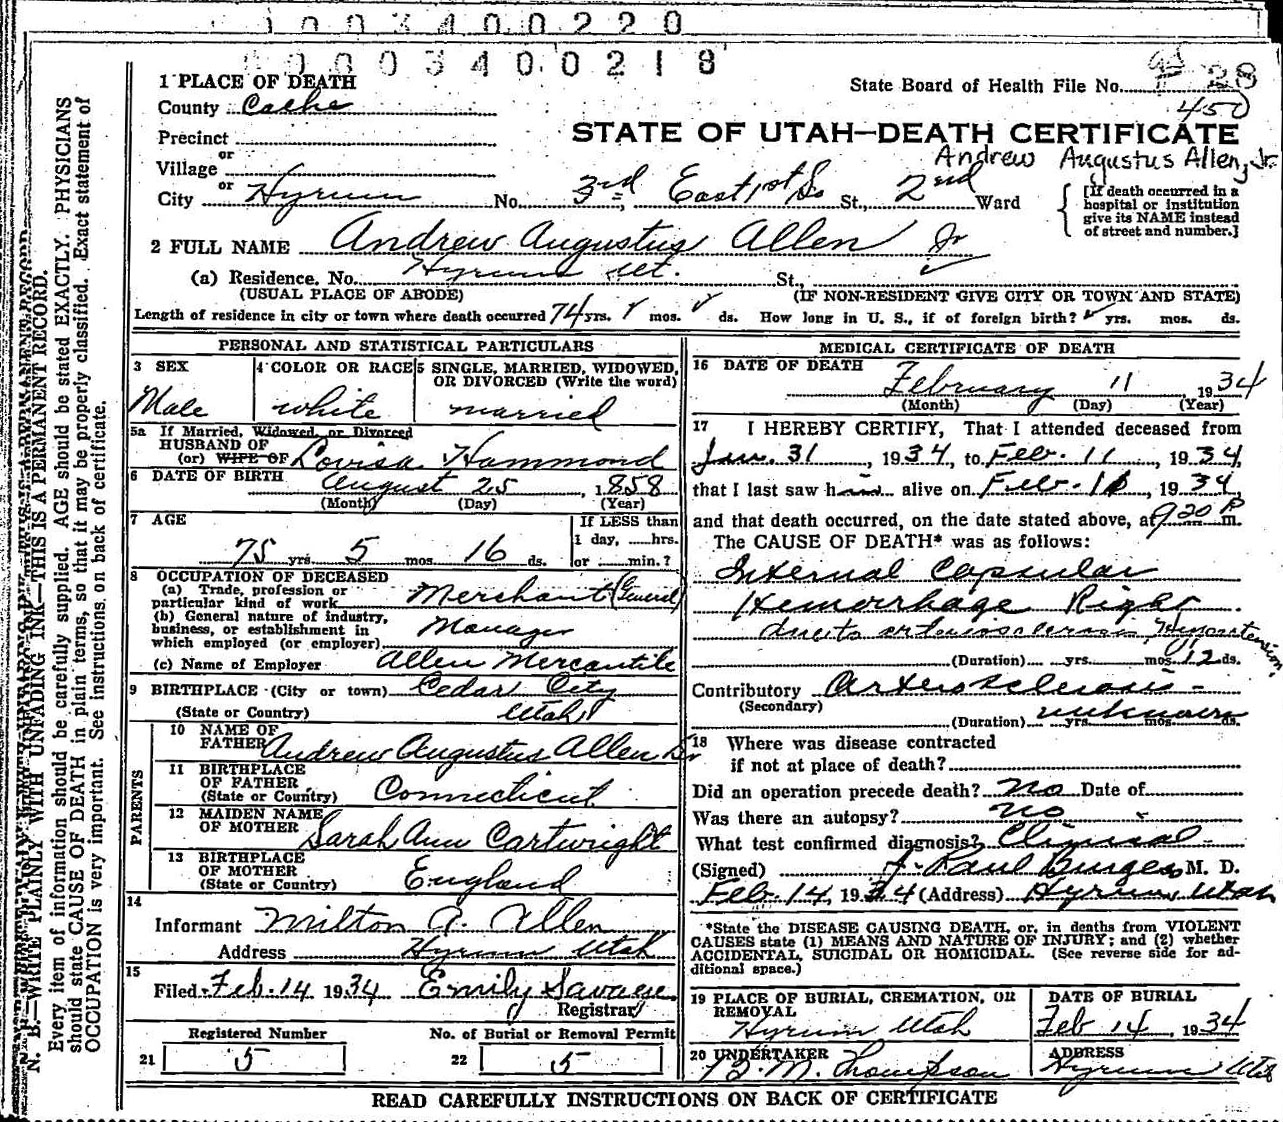 0003400220
0003400218
1 PLACE OF DEATH
State Board of Health File No. 28
450
County Cache
STATE OF UTAH—DEATH CERTIFICATE
Precinct
Andrew Augustus Allen, Jr.
or
Village
or
City Hyrum No. 3rd, East 1st So St., 2nd Ward
[If death occurred in a hospital or institution give its NAME instead of street and number.]
2 FULL NAME Andrew Augustus Allen Jr
(a) Residence. No. Hyrum Ut. St.,
(USUAL PLACE OF ABODE) (IF NON-RESIDENT GIVE CITY OR TOWN AND STATE)
Length of residence in city or town where death occurred 74 yrs. mos. ds. How long in U. S., if of foreign birth? yrs. mos. ds.
PERSONAL AND STATISTICAL PARTICULARS
3 SEX 4 COLOR OR RACE 5 SINGLE, MARRIED, WIDOWED, OR DIVORCED (Write the word)
Male white married
5a If Married, Widowed, or Divorced
HUSBAND OF
(or) WIFE OF Lovisa Hammond
6 DATE OF BIRTH August 25, 1858
(Month) (Day) (Year)
7 AGE If LESS than
1 day, ......hrs.
75 yrs. 5 mos. 16 ds. or ......min.?
8 OCCUPATION OF DECEASED
(a) Trade, profession or
particular kind of work Merchant (General)
(b) General nature of industry,
business, or establishment in
which employed (or employer) Manager
(c) Name of Employer Allen Mercantile
9 BIRTHPLACE (City or town) Cedar City
(State or Country) Utah
PARENTS
10 NAME OF
FATHER Andrew Augustus Allen Sr
11 BIRTHPLACE
OF FATHER
(State or Country) Connecticut
12 MAIDEN NAME
OF MOTHER Sarah Ann Cartwright
13 BIRTHPLACE
OF MOTHER
(State or Country) England
14
Informant Milton A. Allen
Address Hyrum Utah
15
Filed Feb. 14 1934 Emily Savage
Registrar
Registered Number No. of Burial or Removal Permit
21 5 22 5
MEDICAL CERTIFICATE OF DEATH
16 DATE OF DEATH
February 11 1934
(Month) (Day) (Year)
17 I HEREBY CERTIFY, That I attended deceased from
Jan. 31, 1934, to Feb. 11, 1934,
that I last saw him alive on Feb. 11, 1934
and that death occurred, on the date stated above, at 9 20 P m.
The CAUSE OF DEATH* was as follows:
Internal Capsular
Hemorrhage Right
due to arteriosclerosis, Hypertension
(Duration) yrs. mos. 12 ds.
Contributory Arterosclerosis -
(Secondary)
(Duration) unknown yrs. mos. ds.
18 Where was disease contracted
if not at place of death?
Did an operation precede death? No Date of
Was there an autopsy? No
What test confirmed diagnosis? Clinical -
(Signed) J. Paul Burgess M. D.
Feb. 14, 1934 (Address) Hyrum, Utah
*State the DISEASE CAUSING DEATH, or, in deaths from VIOLENT
CAUSES state (1) MEANS AND NATURE OF INJURY; and (2) whether
ACCIDENTAL, SUICIDAL OR HOMICIDAL. (See reverse side for ad-
ditional space.)
19 PLACE OF BURIAL, CREMATION, OR DATE OF BURIAL
REMOVAL
Hyrum Utah Feb 14, 1934
20 UNDERTAKER ADDRESS
B. M. Thompson Hyrum Utah
READ CAREFULLY INSTRUCTIONS ON BACK OF CERTIFICATE
N. B.—WRITE PLAINLY WITH UNFADING INK—THIS IS A PERMANENT RECORD.
Every item of information should be carefully supplied. AGE should be stated EXACTLY. PHYSICIANS
should state CAUSE OF DEATH in plain terms, so that it may be properly classified. Exact statement of
OCCUPATION is very important. See instructions on back of certificate.